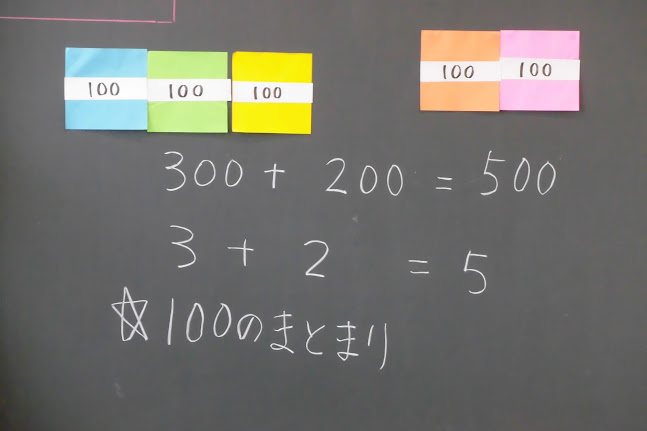 100 100 100 100 100
300 + 200 = 500
3 + 2 = 5
☆100のまとまり